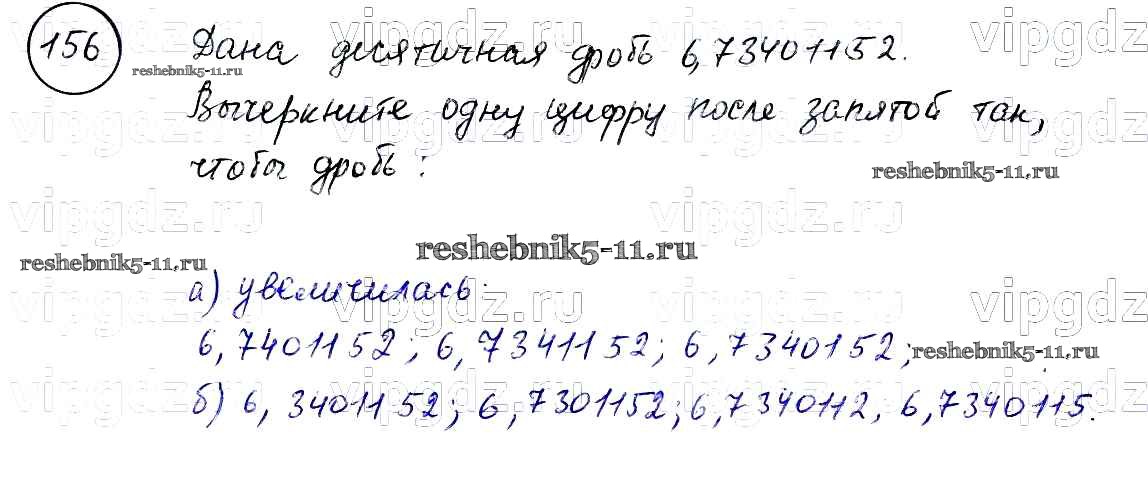 156 Дана десятичная дробь 6,73401152.
Вычеркните одну цифру после запятой так,
чтобы дробь:
а) увеличилась:
6,7401152; 6,7341152; 6,7340152;
б) 6,3401152; 6,7301152; 6,7340112, 6,7340115.
vipgdz.ru
reshebnik5-11.ru